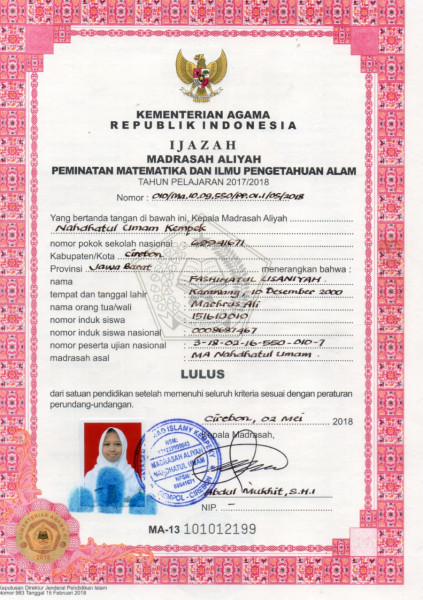 KEMENTERIAN AGAMA
REPUBLIK INDONESIA
IJAZAH
MADRASAH ALIYAH
PEMINATAN MATEMATIKA DAN ILMU PENGETAHUAN ALAM
TAHUN PELAJARAN 2017/2018
Nomor : 010/Ma.10.09.550/PP.01.1/05/2018
Yang bertanda tangan di bawah ini, Kepala Madrasah Aliyah
Nahdhatul Umam Kempek
nomor pokok sekolah nasional : 69941671
Kabupaten/Kota : Cirebon
Provinsi : Jawa Barat menerangkan bahwa :
nama : FASHIHATUL LISANIYAH
tempat dan tanggal lahir : 10 Desember 2000
nama orang tua/wali : Machrus Ali
nomor induk siswa : 151612010
nomor induk siswa nasional : 0008687467
nomor peserta ujian nasional : 3-18-02-16-550-010-7
madrasah asal : MA Nahdhatul Umam
LULUS
dari satuan pendidikan setelah memenuhi seluruh kriteria sesuai dengan peraturan
perundang-undangan.
Cirebon, 02 Mei 2018
Kepala Madrasah,
MADRASAH ALIYAH
NAHDHATUL UMAM
NPSN
69941671
Abdul Mukhit, S.H.I
NIP. -
MA-13 101012199
KEMENTERIAN AGAMA
2018
Keputusan Direktur Jenderal Pendidikan Islam
Nomor 983 Tanggal 15 Februari 2018